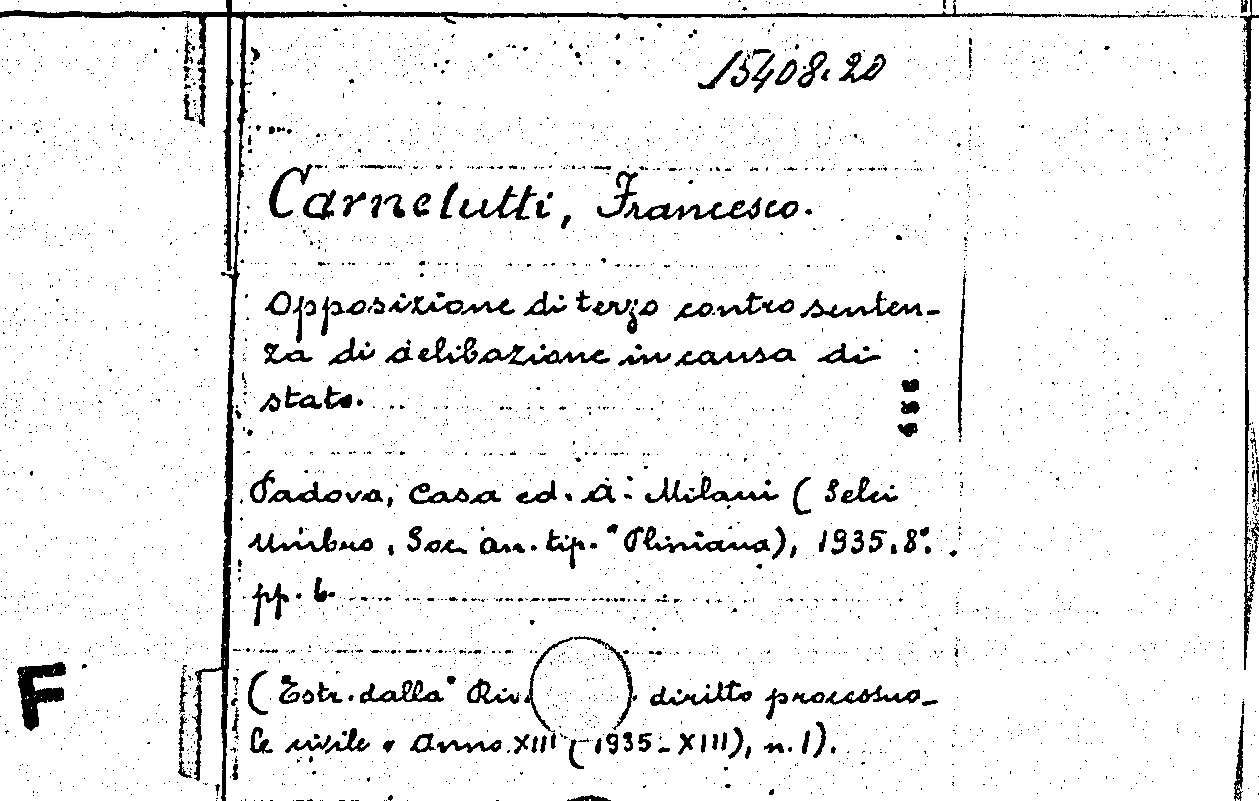 15408.20
Carnelutti, Francesco.
Opposizione di terzo contro senten-
za di delibazione in causa di
stato.
Padova, Casa ed. A. Milani (Selci
Umbro, Soc. an. tip. "Pliniana), 1935. 8°.
pp. 6.
(Estr. dalla "Riv. diritto processua-
le civile" Anno XIII (1935-XIII), n. 1).
F